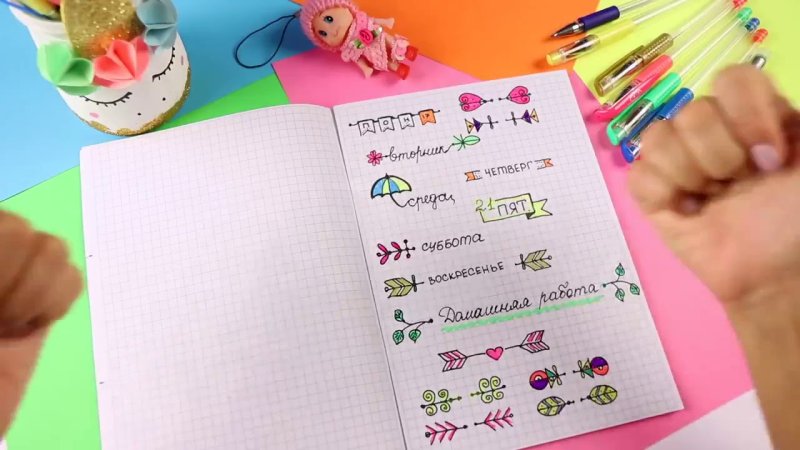 ПОН 17
вторник
четверг
среда
21 ПЯТ.
суббота
воскресенье
Домашняя работа